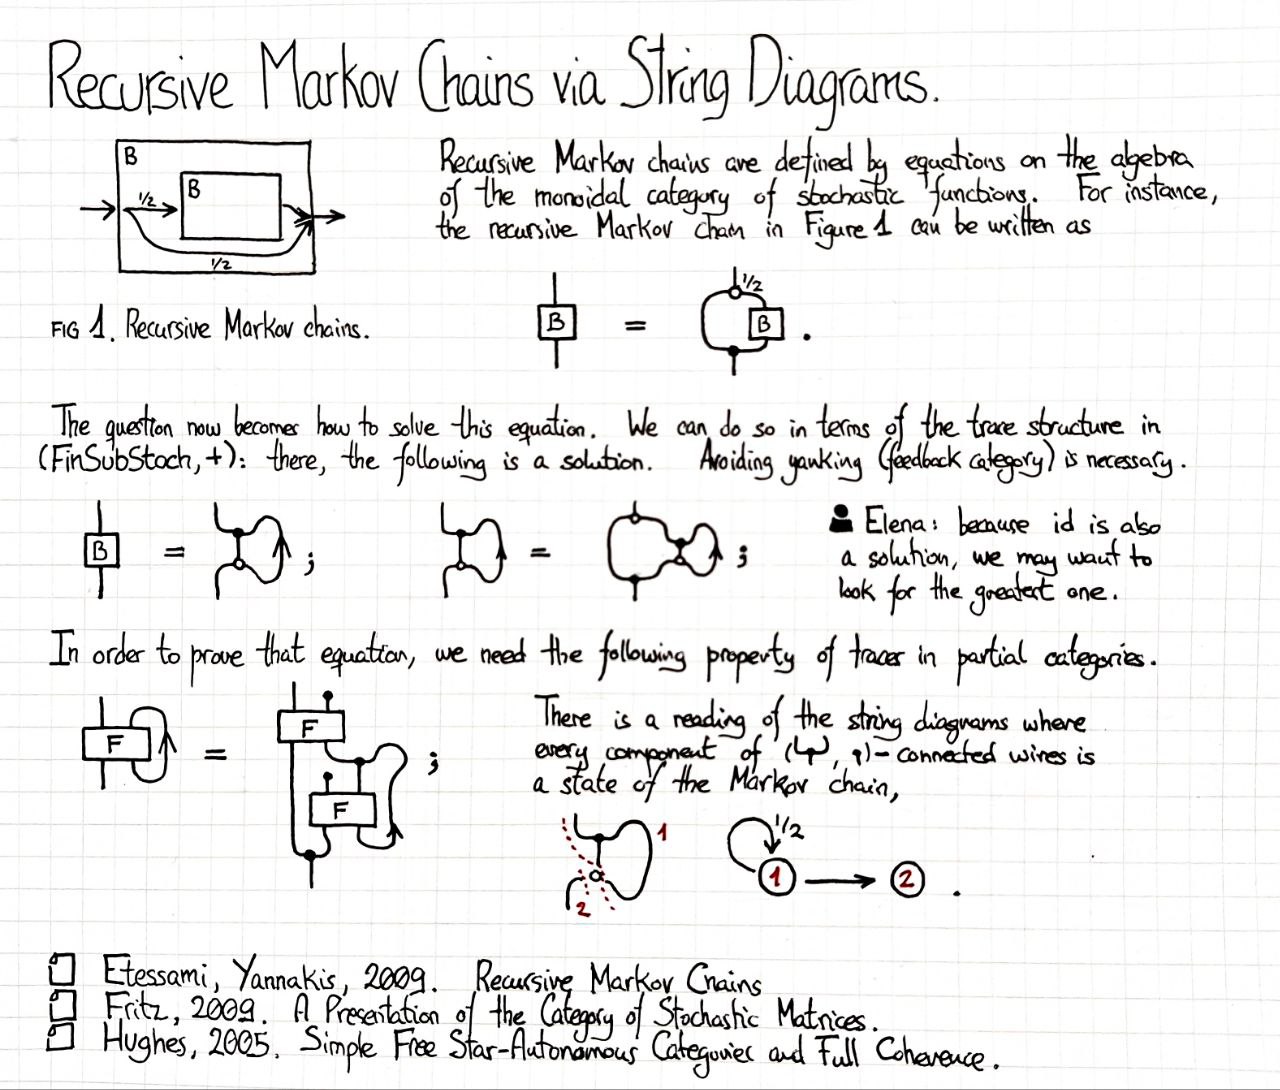 Recursive Markov Chains via String Diagrams.
B
B
1/2
1/2
FIG 1. Recursive Markov chains.
Recursive Markov chains are defined by equations on the algebra
of the monoidal category of stochastic functions. For instance,
the recursive Markov chain in Figure 1 can be written as
B = 1/2 B .
The question now becomes how to solve this equation. We can do so in terms of the trace structure in
(FinSubStoch, +): there, the following is a solution. Avoiding yanking (feedback category) is necessary.
B = ; = ;
Elena: because id is also
a solution, we may want to
look for the greatest one.
In order to prove that equation, we need the following property of traces in partial categories.
F = F F ;
There is a reading of the string diagrams where
every component of ( , )-connected wires is
a state of the Markov chain,
1 2
1/2
1 2 .
Etessami, Yannakis, 2009. Recursive Markov Chains
Fritz, 2009. A Presentation of the Category of Stochastic Matrices.
Hughes, 2005. Simple Free Star-Autonomous Categories and Full Coherence.